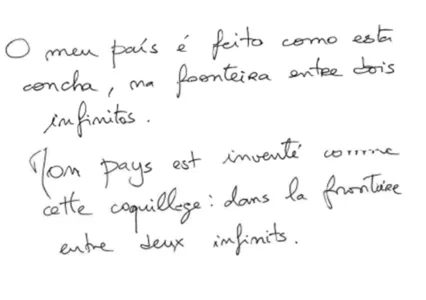 O meu país é feito como esta
concha, na fronteira entre dois
infinitos.
Mon pays est inventé comme
cette coquillage: dans la frontière
entre deux infinits.